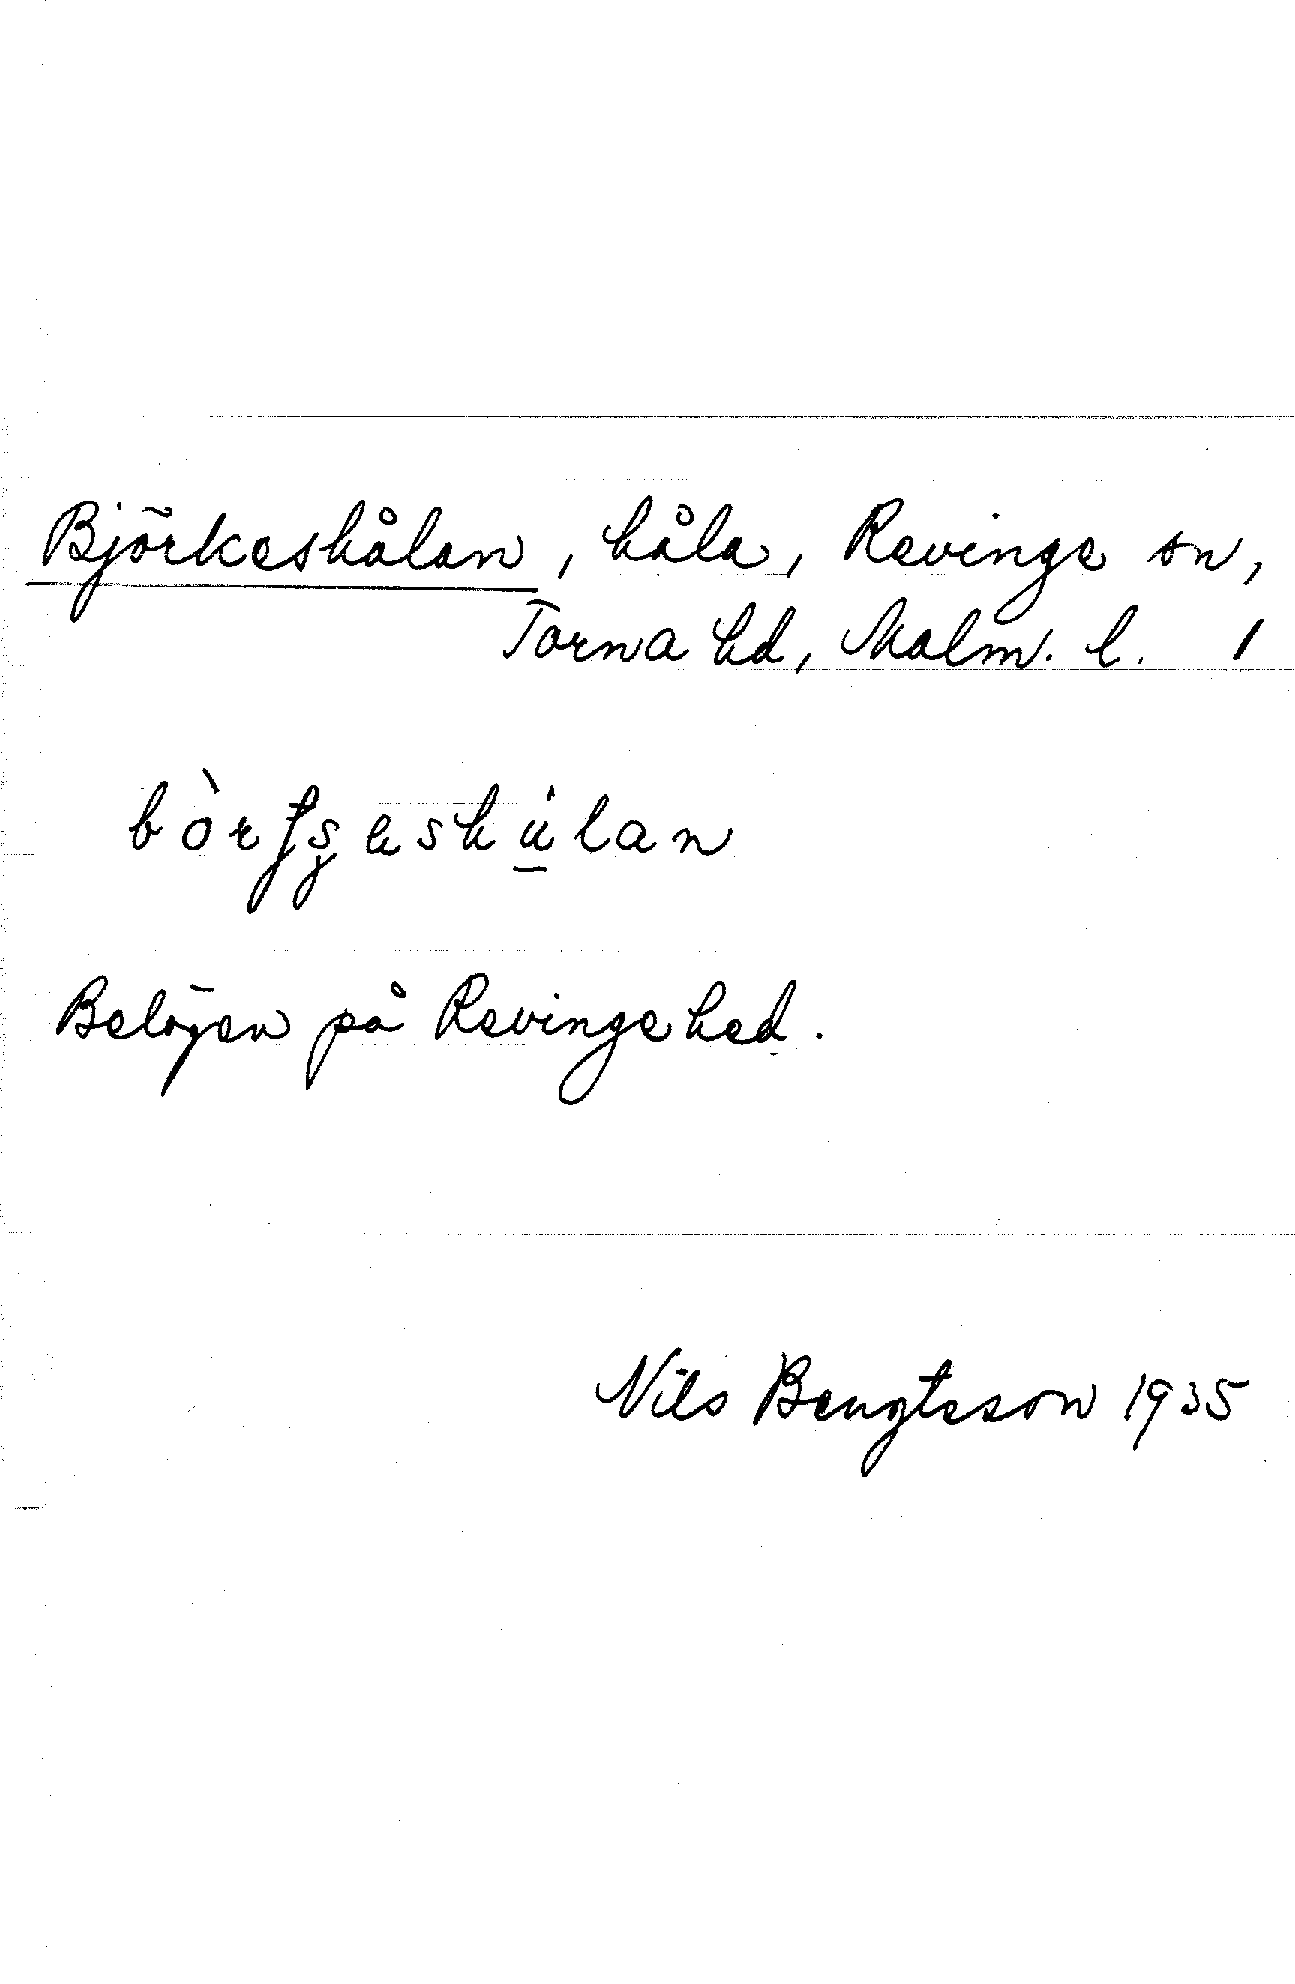 Björkeshålan, håla, Revinge sn,
Torna hd, Malm. l. 1
Belägen på Revingehed.
Nils Bengtsson 1935